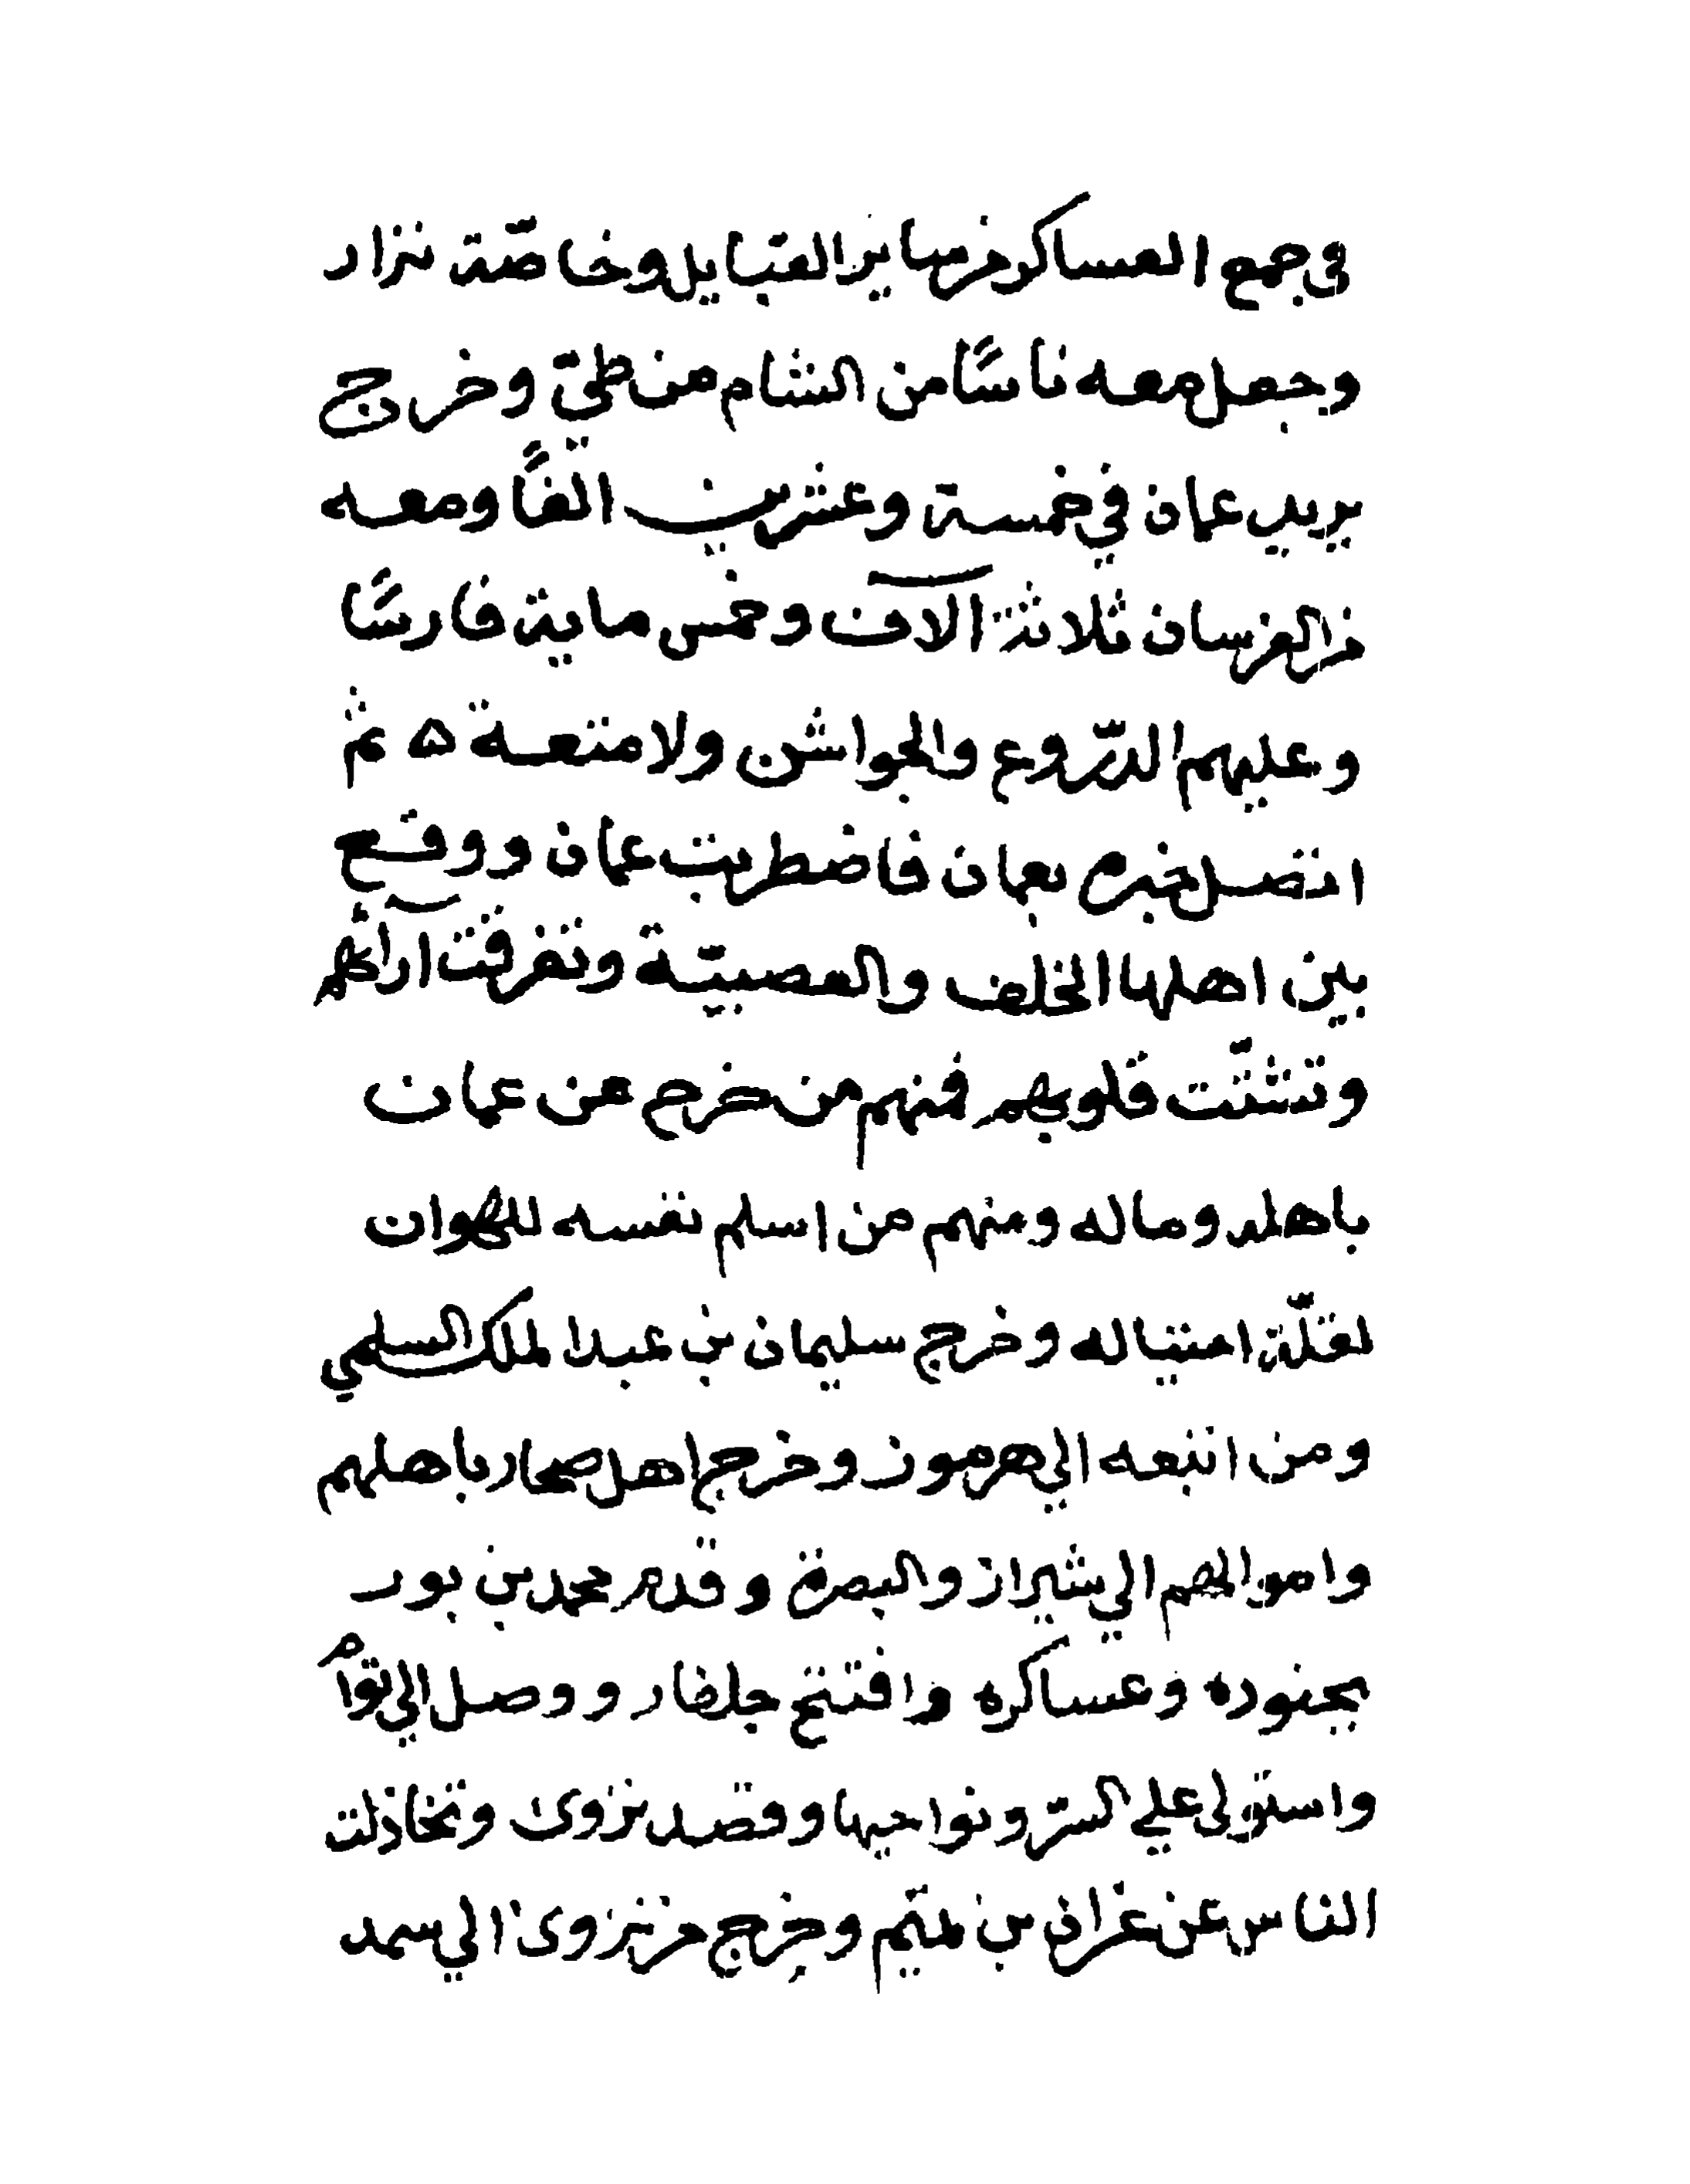 في جمع العساكر من ساير القبايل وخاصّة نزار
وجعل معه ناسًا من الشام من طيّ وخرج
يريد عمان في خمسة وعشرين الفًا ومعه
من الفرسان ثلاثة آلاف وخمس ماية فارسًا
وعليهم الدّروع والجواشن ولامتعة ۵ ثم
اتصل خبره بعمان فاضطربت عمان ووقع
بين اهلها الخلف والعصبيّة وتفرقت اراؤهم
وتشتّت قلوبهم فمنهم من خرج عن عمان
باهله وماله ومنهم من اسلم نفسه للهوان
لقلّة احتياله وخرج سليمان بن عبد الملك السلمي
ومن اتبعه الي هرموز وخرج اهل صحار باهلهم
واموالهم الي شيراز والبصرة وقدم محمد بن بور
بجنوده وعساكره وافتتح جلفار ووصل الي تؤام
واستولى علي السر ونواحيها وقصد نزوى وتخاذلت
الناس عن عزان بن تميم وخرج من نزوى الي سمد